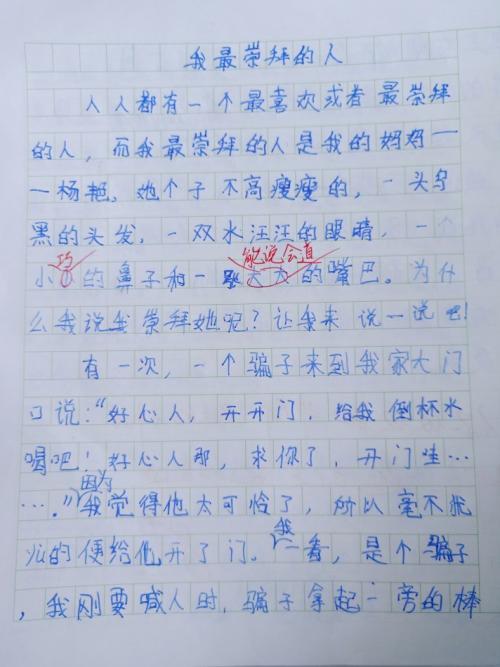 我最崇拜的人
人人都有一个最喜欢或者最崇拜
的人，而我最崇拜的人是我的妈妈—
—杨艳。她个子不高瘦瘦的，一头乌
黑的头发，一双水汪汪的眼睛，一个
巧 能说会道
小小的鼻子和一张大大的嘴巴。为什
么我说我崇拜她呢？让我来说一说吧！
有一次，一个骗子来到我家大门
口说：“好心人，开开门，给我倒杯水
喝吧！好心人那，求你了，开门哇…
因为
….”我觉得他太可怜了，所以毫不犹
我
心的便给他开了门。一看，是个骗子
，我刚要喊人时，骗子拿起一旁的棒